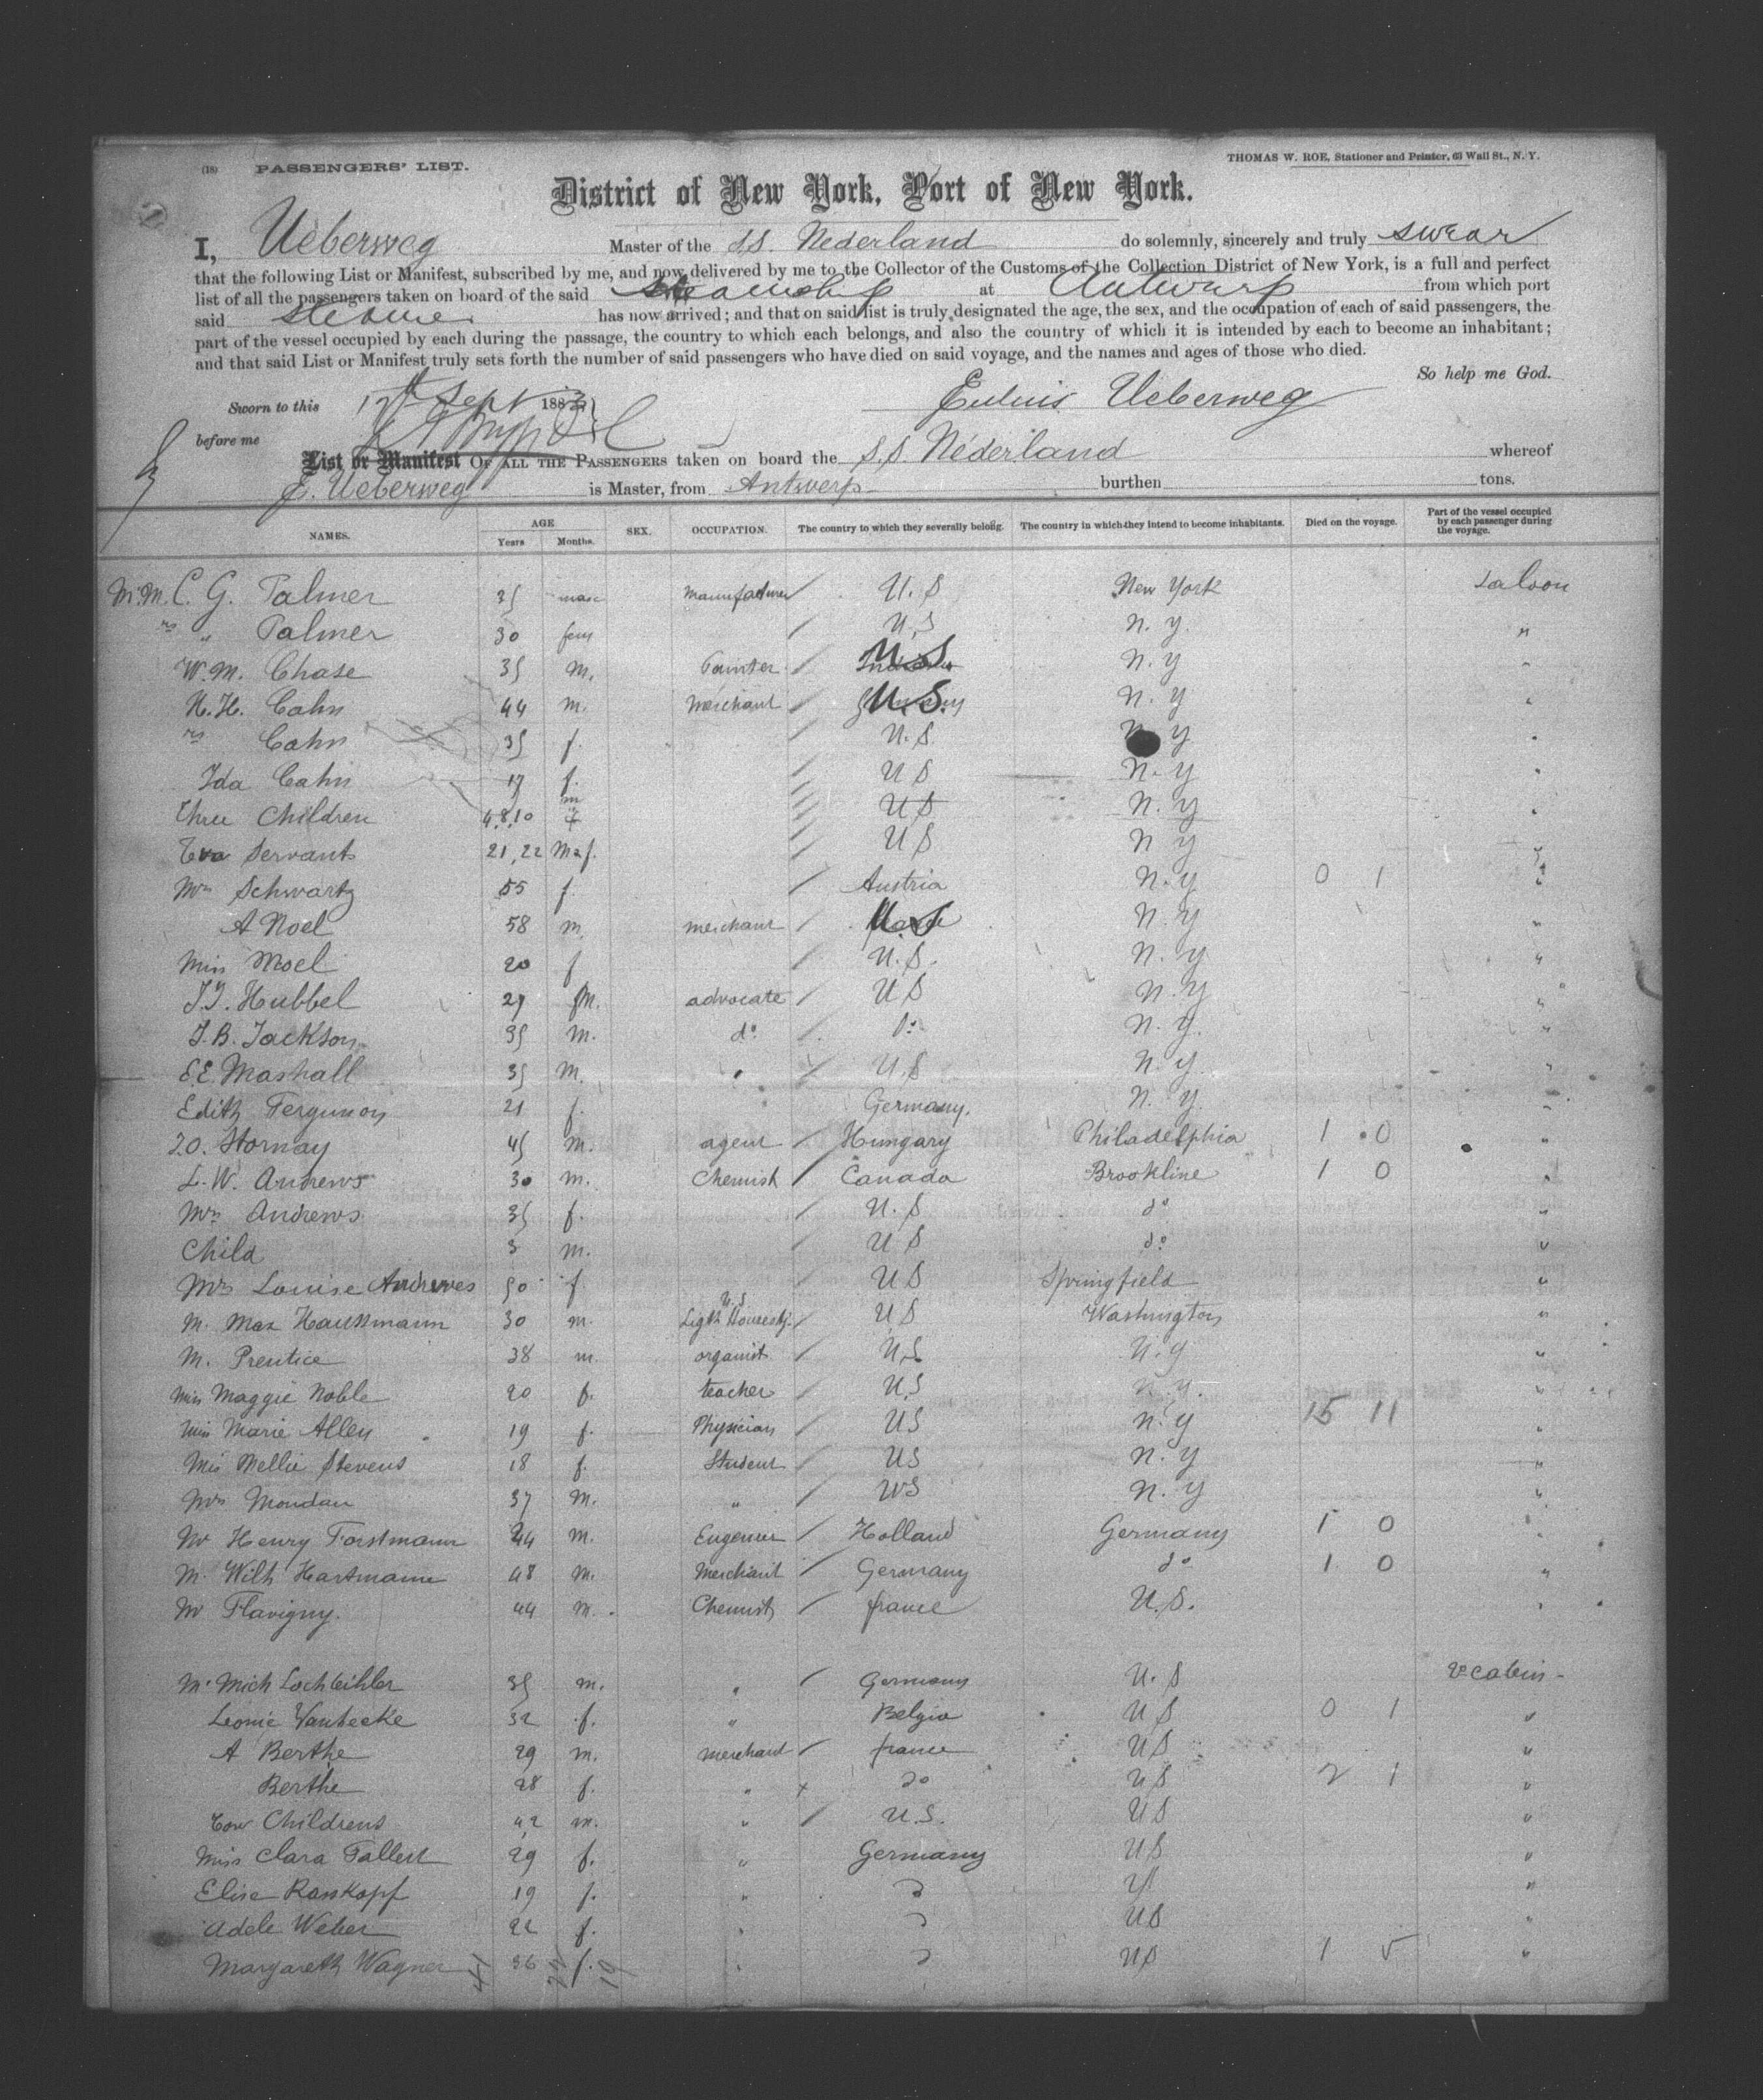 (18) PASSENGERS' LIST.
THOMAS W. ROE, Stationer and Printer, 63 Wall St., N. Y.
District of New York, Port of New York.
I, Ueberweg Master of the S.S. Nederland do solemnly, sincerely and truly swear
that the following List or Manifest, subscribed by me, and now delivered by me to the Collector of the Customs of the Collection District of New York, is a full and perfect
list of all the passengers taken on board of the said steamship at Antwerp from which port
said steamer has now arrived; and that on said list is truly designated the age, the sex, and the occupation of each of said passengers, the
part of the vessel occupied by each during the passage, the country to which each belongs, and also the country of which it is intended by each to become an inhabitant;
and that said List or Manifest truly sets forth the number of said passengers who have died on said voyage, and the names and ages of those who died.
So help me God.
Sworn to this Sept 188 Ueberweg
before me
List or Manifest OF ALL THE PASSENGERS taken on board the S.S. Nederland whereof
E. Ueberweg is Master, from Antwerp burthen tons.
NAMES. AGE Years Months. SEX. OCCUPATION. The country to which they severally belong. The country in which they intend to become inhabitants. Died on the voyage. Part of the vessel occupied by each passenger during the voyage.
C. G. Palmer 35 masc manufacturer U.S New York Saloon
rs " Palmer 30 fem U.S N.Y. "
W.M. Chase 35 m. Painter U.S N.Y "
H.H. Cahn 44 m. merchant U.S. N.Y "
rs Cahn 35 f. U.S. N Y "
Ida Cahn 17 f. U S N.Y "
Three Children 4,8,10 m f U S N.Y "
Two Servants 21,22 M&f. U S N Y "
Mrs Schwartz 55 f. Austria N.Y 0 1 "
A Noel 58 m. merchant U.S N.Y. "
Miss Moel 20 f U.S. N.Y. "
J.J. Hubbel 27 M. advocate U S N.Y "
J.B. Jackson 35 m. do do N.Y. "
E.E. Mashall 35 M. " U.S N.Y. "
Edith Ferguson 21 f. Germany. N.Y. "
45 m. agent Hungary Philadelphia 1 0 "
L.W. Andrews 30 m. Chemist Canada Brookline 1 0 "
Mrs Andrews 35 f. U.S do "
Child 3 m. U S do "
Mrs Louise Andrewes 50 f. U S Springfield "
M. Max Haussmann 30 m. U.S Light U S Washington "
M. Prentice 38 m. organist U.S N.Y "
Miss Maggie Noble 20 f. teacher U.S N.Y. "
Miss Marie Allen 19 f. Physician US N.Y 15 11 "
Mis Mellie Stevens 18 f. Student US N.Y "
Mrs Mondan 37 M. " US N.Y "
Mr Henry Forstmann 44 m. Engenier Holland Germany 1 0 "
M. Wilh Hartmann 48 m. Merchant Germany do 1 0 "
Mr Flavigny. 44 m. Chemist france U.S. "
M. Mich Lochbihler 35 m. " Germany U.S 2e cabin
Leonie Vanbecke 32 f. " Belgia U S 0 1 "
A Berthe 29 m. merchant france U S "
Berthe 28 f. " do U S 2 1 "
Tow Childrens 4,2 m. " U.S. U S "
Miss Clara Tallert 29 f. " Germany U S "
Elise Rosskopf 19 f. " "
Adele Weber 22 f. " U S "
Margareth Wagner 36 f. " U S 1 5 "